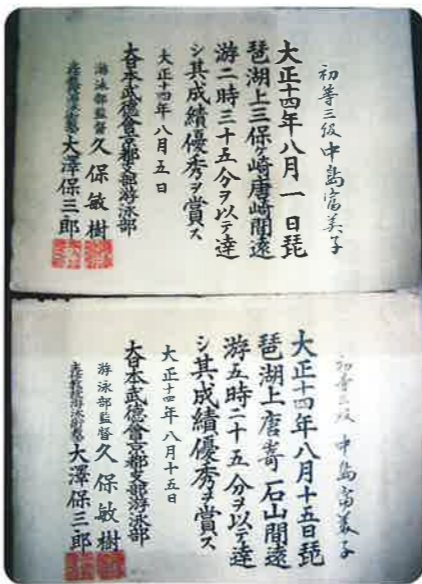 初等三級 中島富美子
大正十四年八月一日琵
琶湖上三保ケ崎唐崎間遠
游二時三十五分ヲ以テ達
シ其成績優秀ヲ賞ス
大正十四年八月五日
大日本武德會京都支部游泳部
游泳部監督 久保敏樹
大澤保三郎
初等三級 中島富美子
大正十四年八月十五日琵
琶湖上唐崎石山間遠
游五時二十五分ヲ以テ達
シ其成績優秀ヲ賞ス
大正十四年八月十五日
大日本武德會京都支部游泳部
游泳部監督 久保敏樹
大澤保三郎